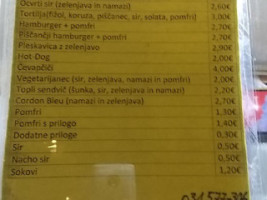 Ocvrti sir (zelenjava in namazi) 2,60€
Tortilja(fižol, koruza, piščanec, sir, solata, pomfri) 3,00€
Hamburger + pomfri 2,70€
Piščančji hamburger + pomfri 2,70€
Pleskavica z zelenjavo 2,90€
Hot-Dog 2,00€
Čevapčiči 4,00€
Vegetarijanec (sir, zelenjava, namazi in pomfri) 2,00€
Topli sendvič (šunka, sir, zelenjava in namazi) 2,20€
Cordon Bleu (namazi in zelenjava) 2,70€
Pomfri 1,30€
Pomfri s prilogo 1,40€
Dodatne priloge 0,30€
Sir 0,50€
Nacho sir 0,50€
Sokovi 1,20€